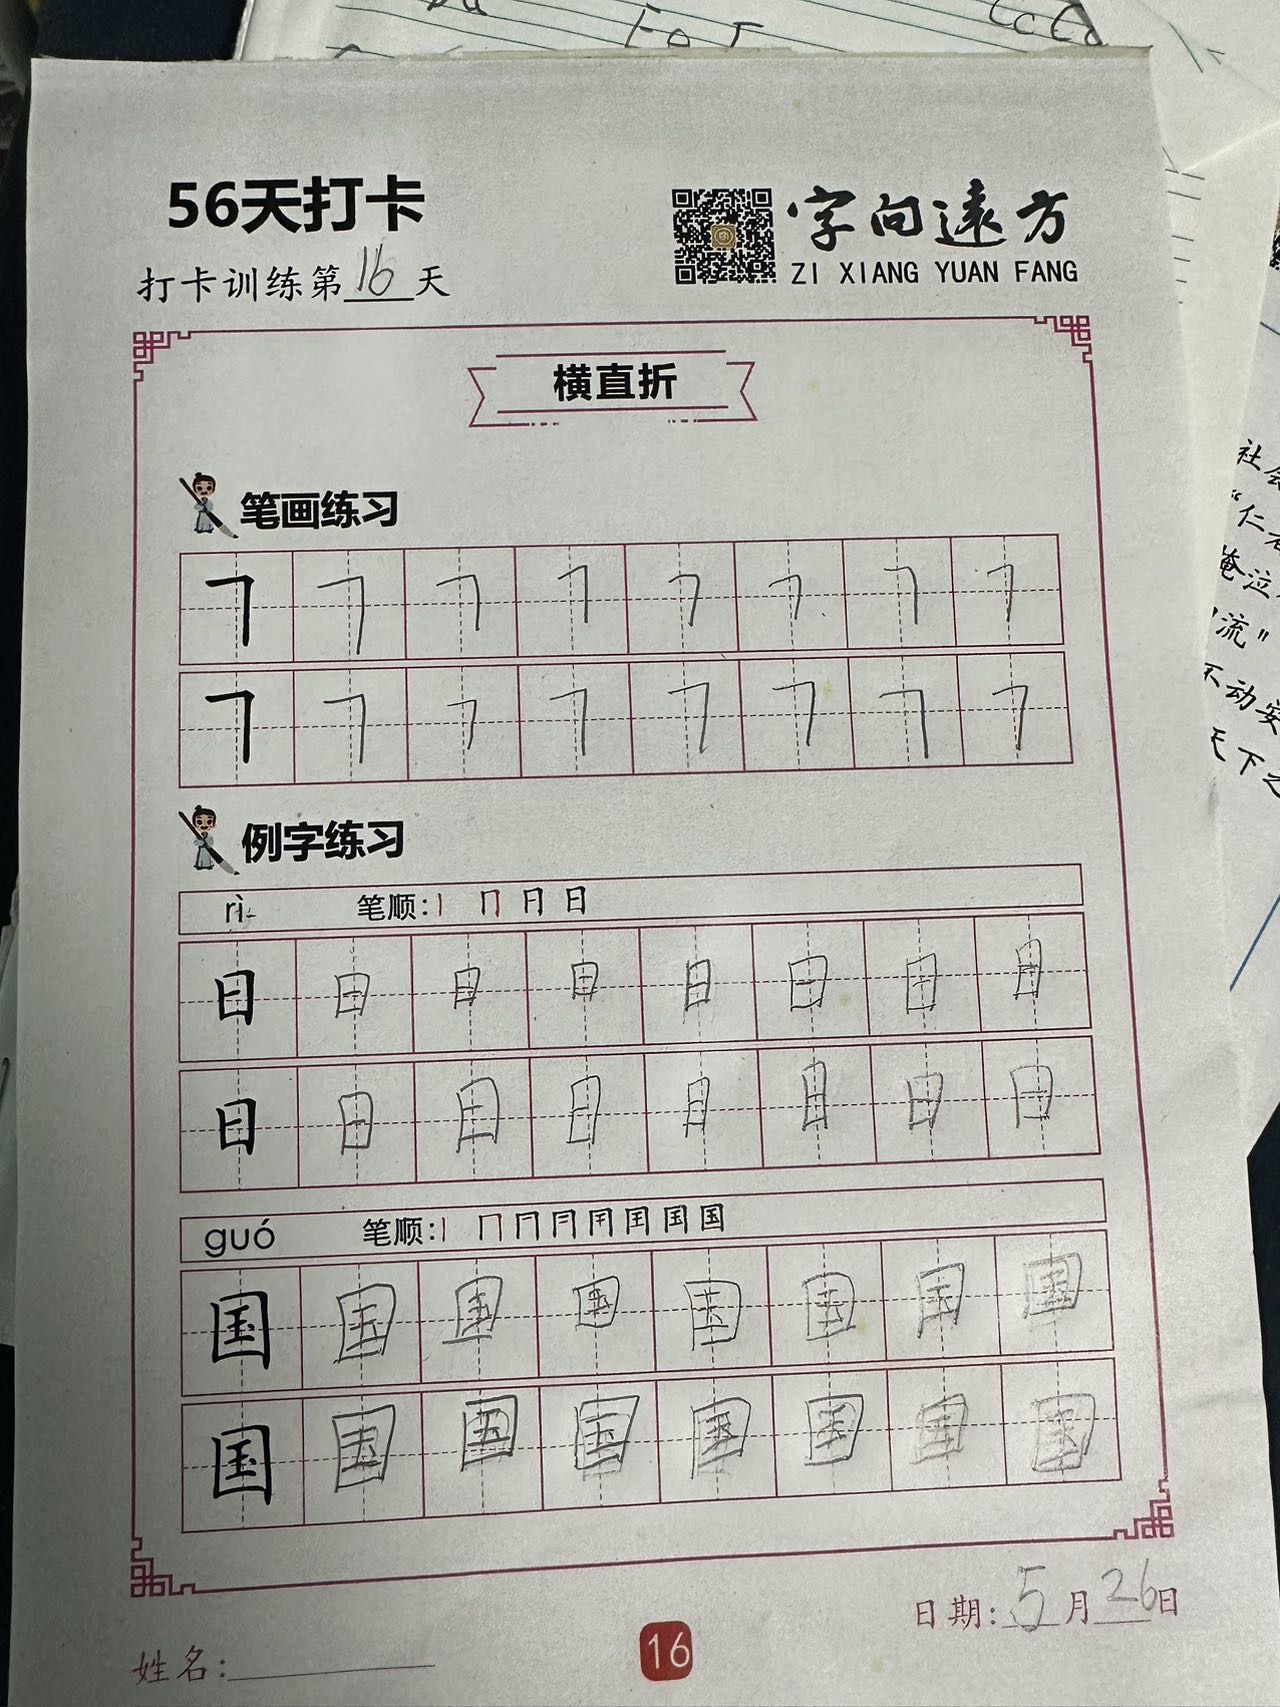 56天打卡
字向遠方
ZI XIANG YUAN FANG
打卡训练第16天
横直折
笔画练习
㇕ ㇕ ㇕ ㇕ ㇕ ㇕ ㇕ ㇕
㇕ ㇕ ㇕ ㇕ ㇕ ㇕ ㇕ ㇕
例字练习
rì 笔顺:丨 冂 日 日
日 日 日 日 日 日 日 日
日 日 日 日 日 日 日 日
guó 笔顺:丨 冂 国
国 国 国 国 国 国 国 国
国 国 国 国 国 国 国 国
日期:5月26日
姓名:
16
社会
"仁
流"
不动安
天下之